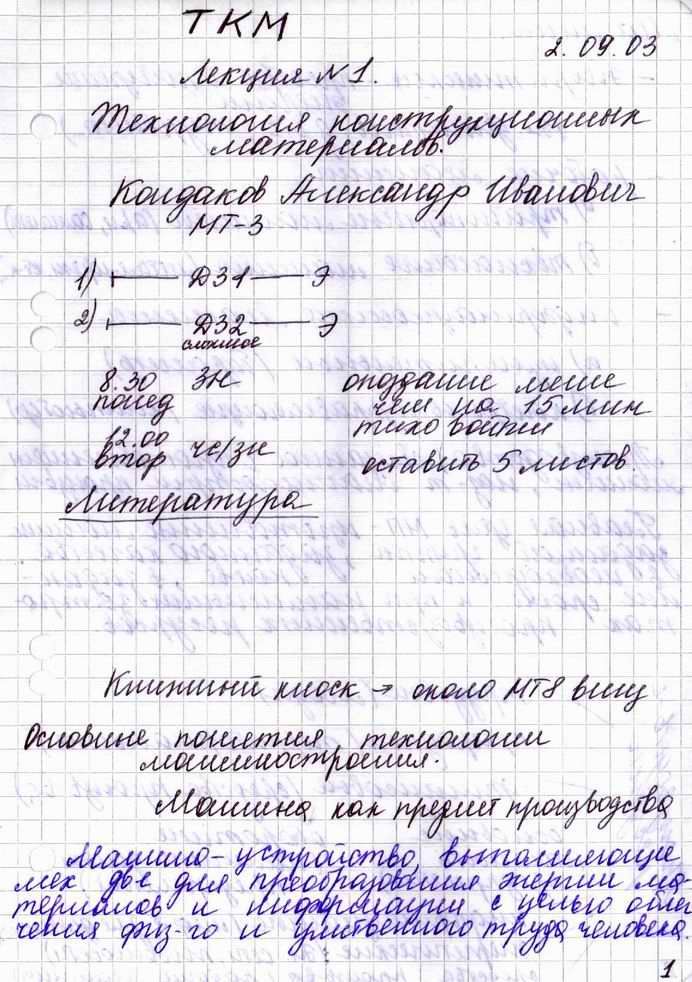 ТКМ
2.09.03
Лекция №1.
Технология конструкционных
материалов.
Кондаков Александр Иванович
МТ-3
1) ДЗ1 Э
2) ДЗ2 Э
сложное
8.30 ЗН опоздание мене
понед чем на 15 мин
тихо войти
12.00
втор чс/зн оставить 5 листов.
Литература
Книжный киоск → около МТ8 вниз
Основные понятия технологии
машиностроения.
Машина как предмет производства
Машина - устройство, выполняющее
мех. дв-е для преобразования энергии ма-
териалов и информации с целью облег
чения физ-го и умственного труда человека.
1